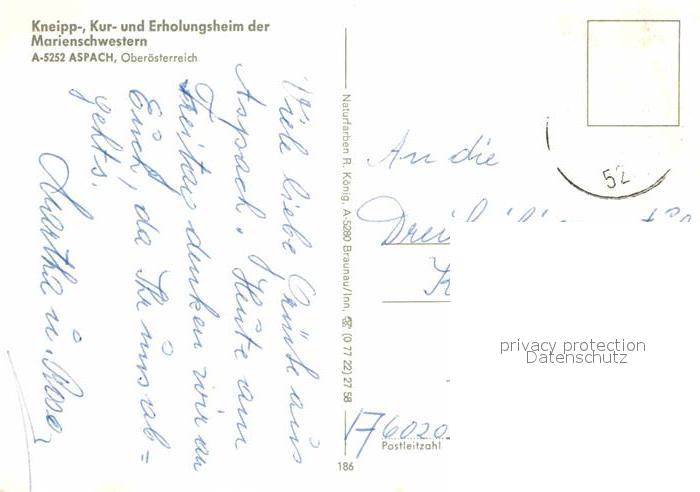 Kneipp-, Kur- und Erholungsheim der
Marienschwestern
A-5252 ASPACH, Oberösterreich
Viele liebe Grüße aus
Aspach. Heute am
Freitag denken wir an
Euch, da Ihr uns ab=
gehts.
Martha u.
Naturfarben R. König, A-5280 Braunau/Inn, ☏ (0 77 22) 27 58
186
52
An die
Drei
K
privacy protection
Datenschutz
6020
Postleitzahl